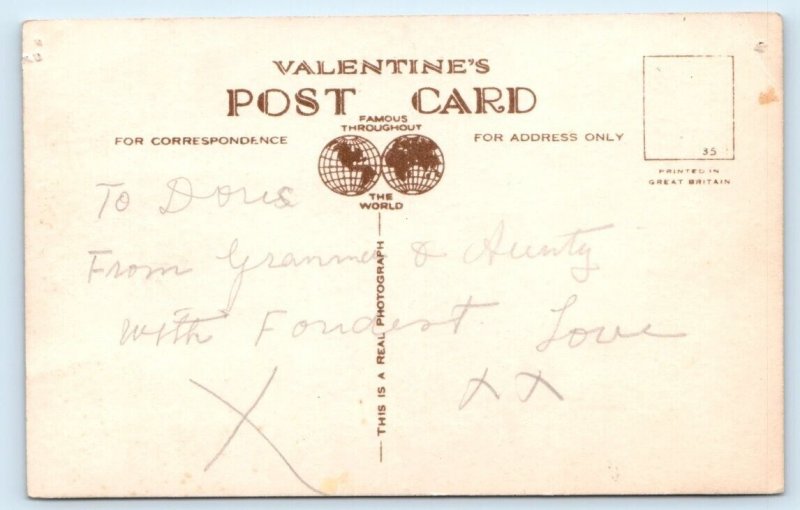 VALENTINE'S
POST CARD
FAMOUS
THROUGHOUT
FOR CORRESPONDENCE
FOR ADDRESS ONLY
35
PRINTED IN
GREAT BRITAIN
THE
WORLD
THIS IS A REAL PHOTOGRAPH
To Doris
From Grannie & Aunty
with Fondest Love
X X X